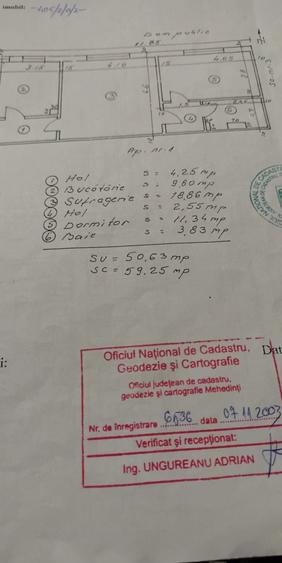 imobil: -405/2/0/2-
Domeniu public
11.85
3.15
15
4.10
15
4.65
2
3
5
1
4
6
Ap. nr. 1
1 Hol S = 4,25 mp
2 Bucătărie S = 9,80 mp
3 Sufragerie S = 18,86 mp
4 Hol S = 2,55 mp
5 Dormitor S = 11,34 mp
6 Baie S = 3,83 mp
SU = 50,63 mp
SC = 59,25 mp
Oficiul Național de Cadastru,
Geodezie și Cartografie
Oficiul județean de cadastru,
geodezie și cartografie Mehedinți
Nr. de înregistrare 6536 data 07 11 2003
Verificat și recepționat:
Ing. UNGUREANU ADRIAN
Dat
i: